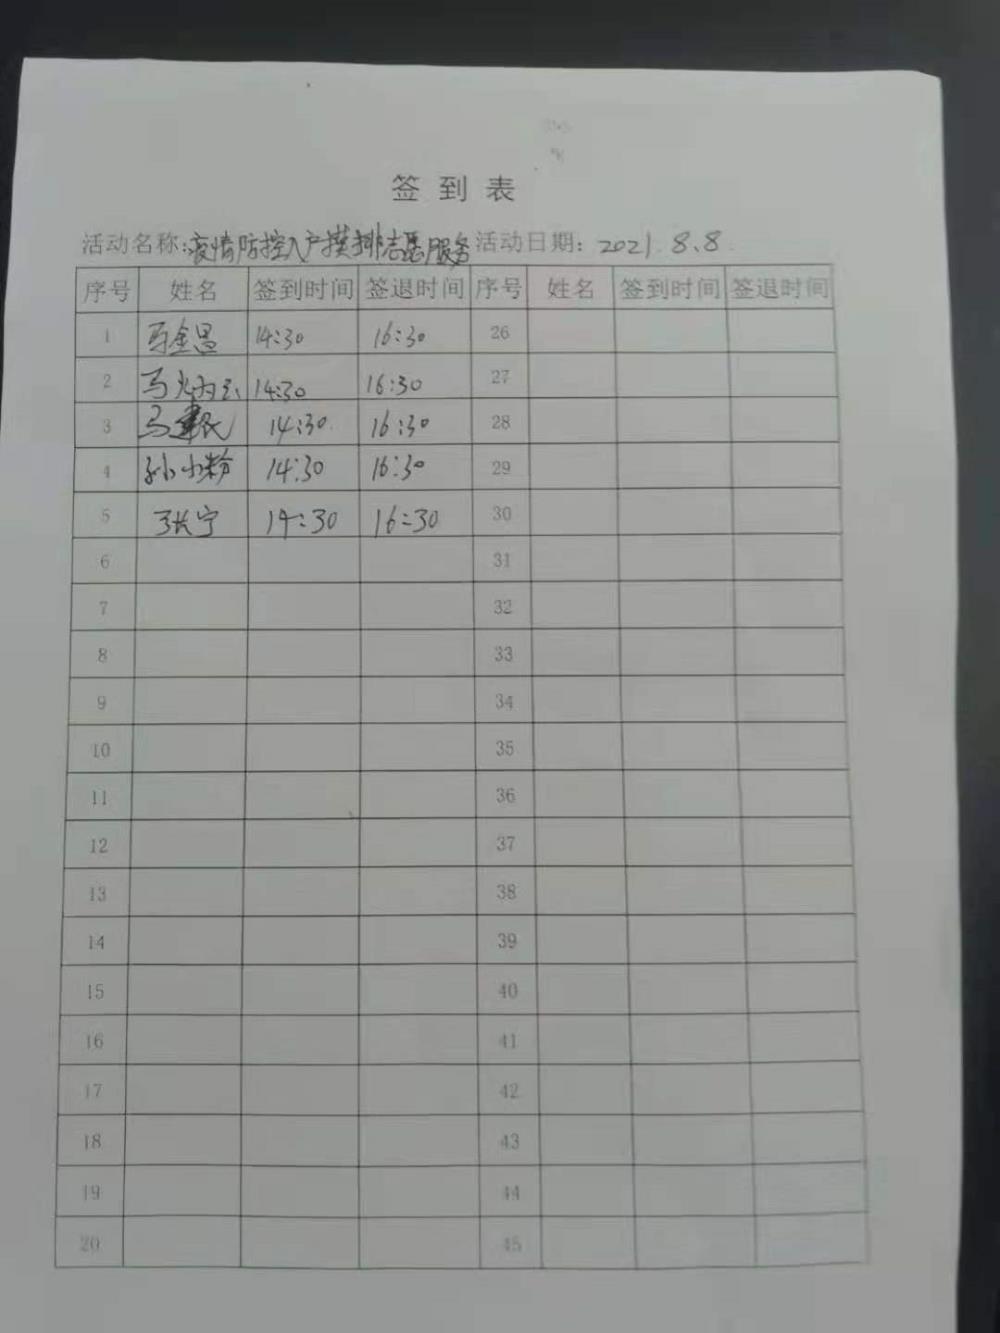 签到表
活动名称:疫情防控入户摸排志愿服务 活动日期: 2021.8.8
序号 姓名 签到时间 签退时间 序号 姓名 签到时间 签退时间
1 马金昌 14:30 16:30 26
2 马炳玉 14:30 16:30 27
3 马建民 14:30 16:30 28
4 孙小粉 14:30 16:30 29
5 张宁 14:30 16:30 30
6 31
7 32
8 33
9 34
10 35
11 36
12 37
13 38
14 39
15 40
16 41
17 42
18 43
19 44
20 45